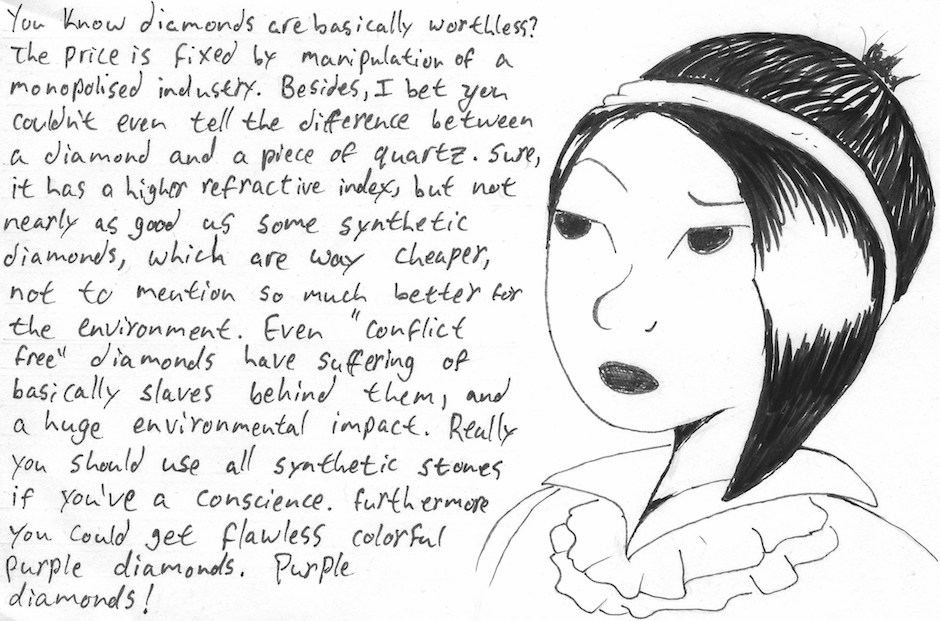 You know diamonds are basically worthless?
The price is fixed by manipulation of a
monopolised industry. Besides, I bet you
couldn't even tell the difference between
a diamond and a piece of quartz. Sure,
it has a higher refractive index, but not
nearly as good as some synthetic
diamonds, which are way cheaper,
not to mention so much better for
the environment. Even "conflict
free" diamonds have suffering of
basically slaves behind them, and
a huge environmental impact. Really
you should use all synthetic stones
if you've a conscience. furthermore
you could get flawless colorful
purple diamonds. Purple
diamonds!